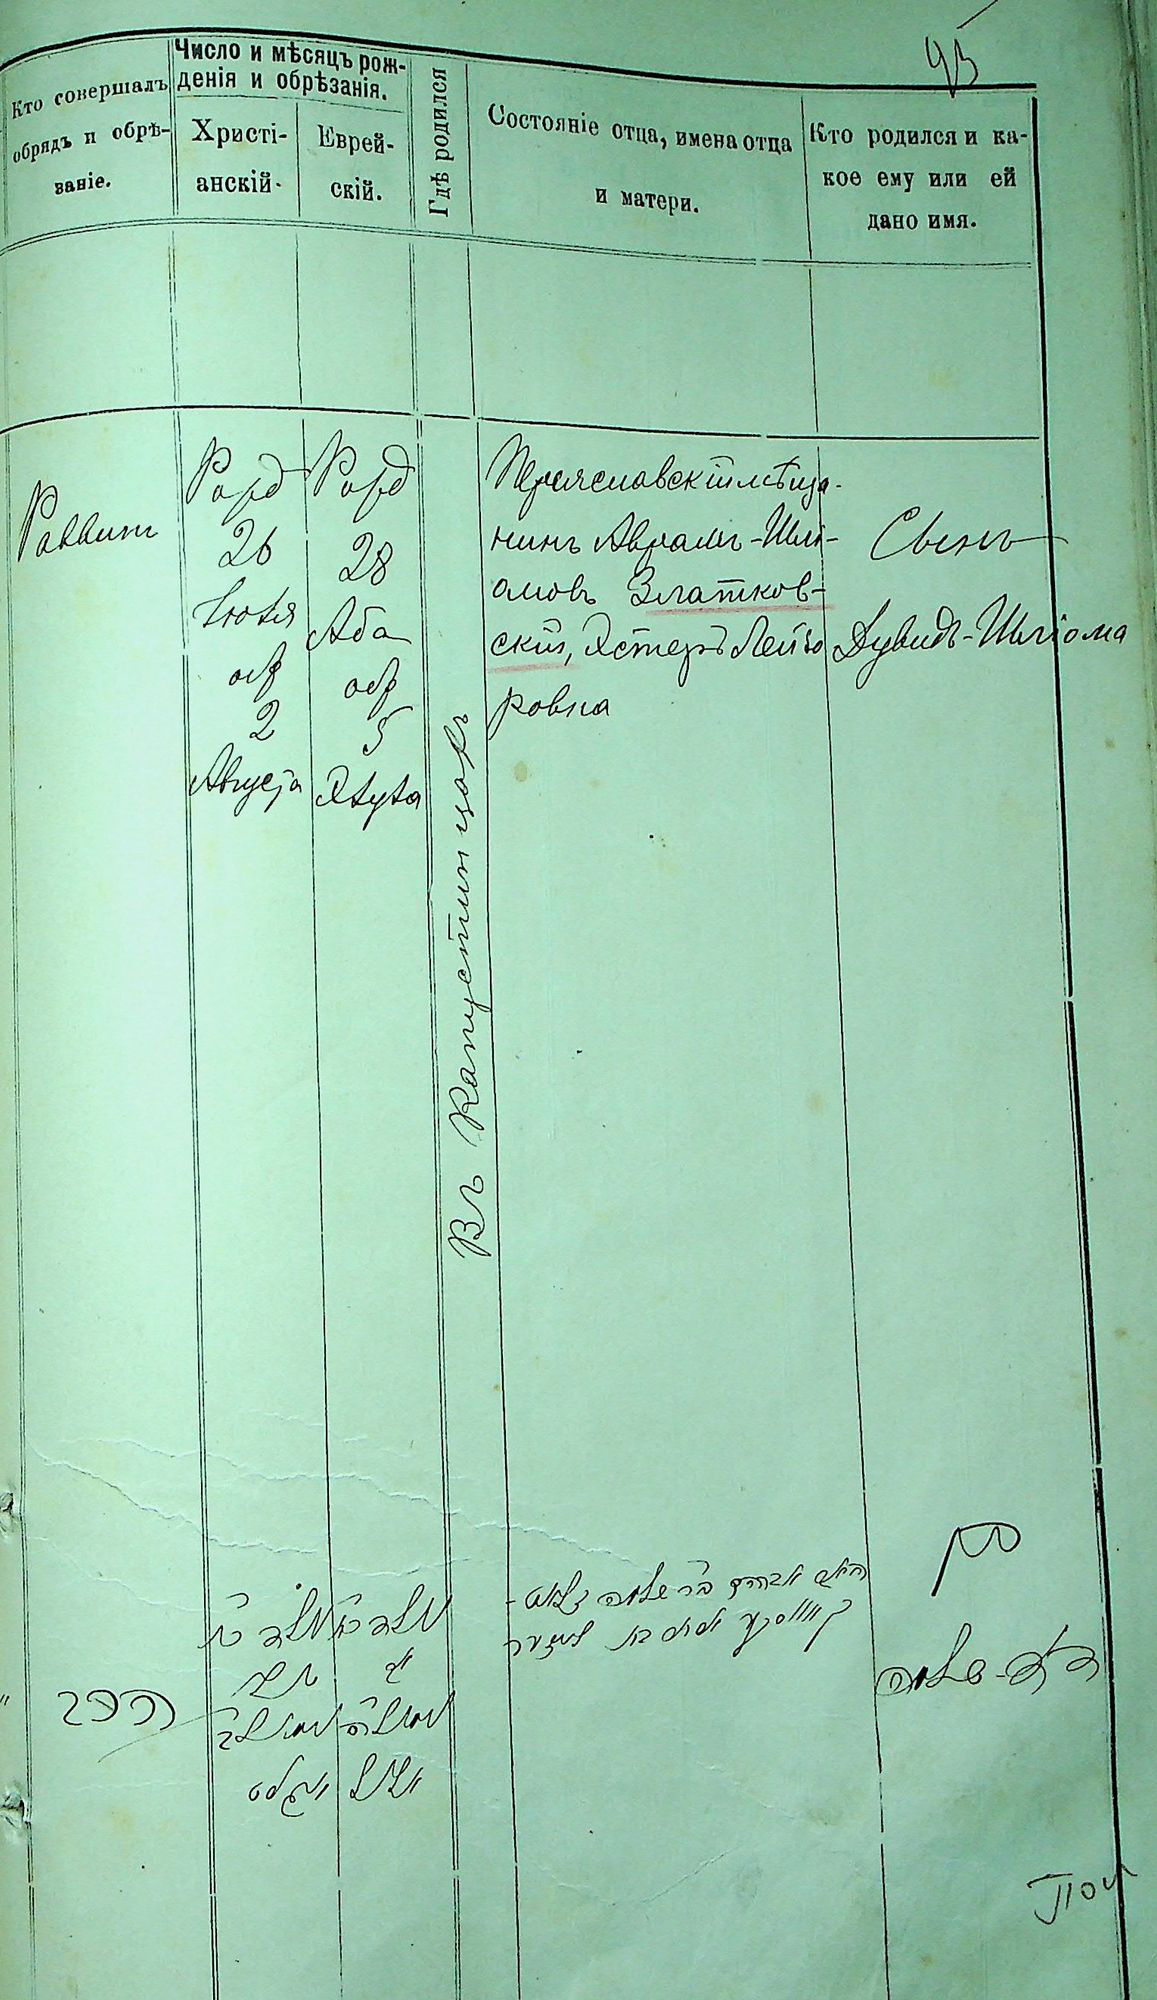 95
Кто совершалъ
обрядъ и обрѣ-
заніе.
Число и мѣсяцъ рож-
денія и обрѣзанія.
Христі-
анскій.
Еврей-
скій.
Гдѣ родился
Состояніе отца, имена отца
и матери.
Кто родился и ка-
кое ему или ей
дано имя.
Раввинъ
Рожд
26
Іюля
обр
2
Августа
Рожд
28
Аба
обр
5
Элула
Въ Капустинцахъ
Переяславскій мѣща-
нинъ Аврамъ-Шлі-
омовъ Златков-
скій, Эстеръ Лейзо
ровна
Сынъ
Дувидъ-Шліома
הרב
בן
דוד-שלמה